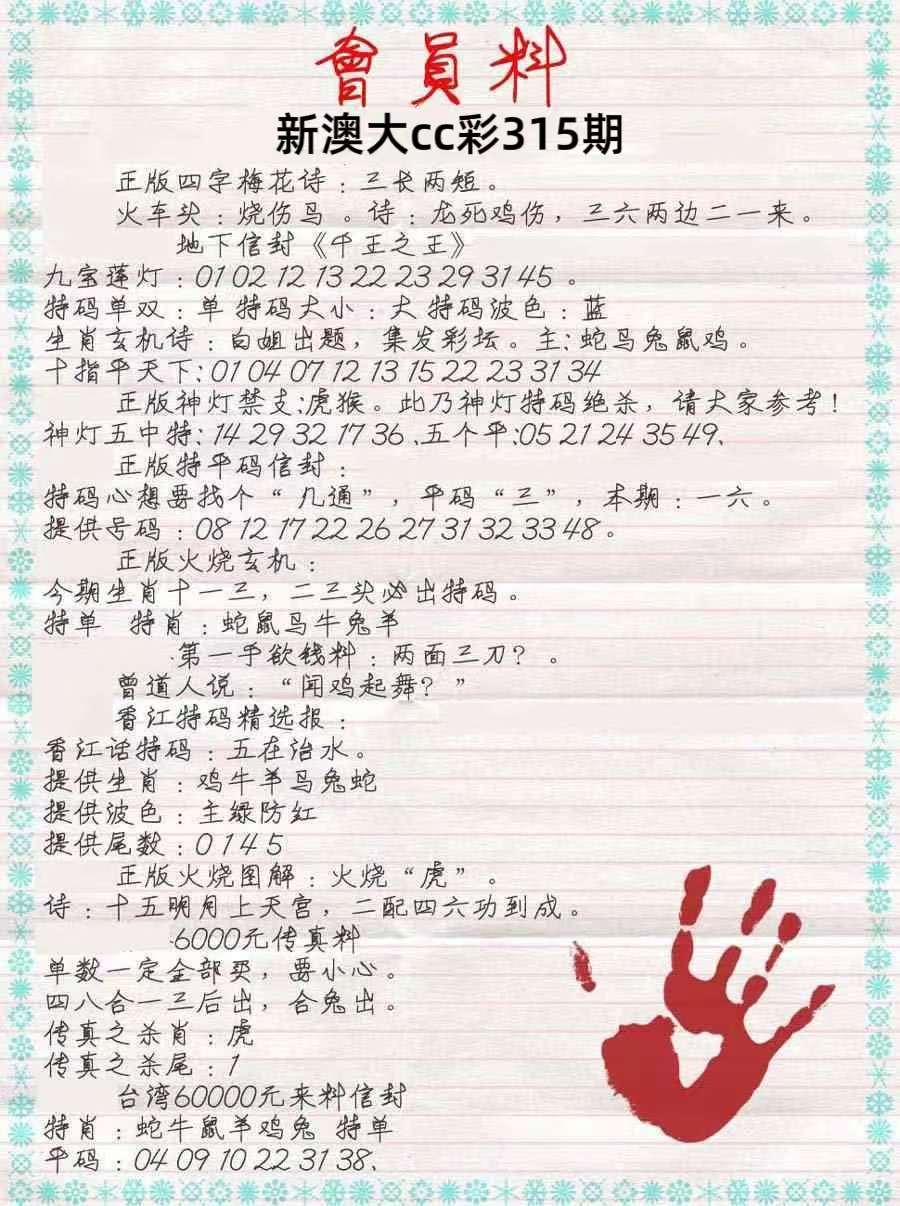 會員料
新澳大cc彩315期
正版四字梅花诗：三长两短。
火车头：烧伤鸟。诗：龙死鸡伤，三六两边二一来。
地下信封《千王之王》
九宝莲灯：01 02 12 13 22 23 29 31 45 。
特码单双：单 特码大小：大 特码波色：蓝
生肖玄机诗：白姐出题，集发彩坛。主：蛇马兔鼠鸡。
十指平天下：01 04 07 12 13 15 22 23 31 34
正版神灯禁支：虎猴。此乃神灯特码绝杀，请大家参考！
神灯五中特：14 29 32 17 36 、五个平：05 21 24 35 49、
正版特平码信封：
特码心想要找个“几通”，平码“三”，本期：一六。
提供号码：08 12 17 22 26 27 31 32 33 48 。
正版火烧玄机：
今期生肖十一三，二三头必出特码。
特单 特肖：蛇鼠马牛兔羊
·第一手欲钱料：两面三刀？。
曾道人说：“闻鸡起舞？”
香江特码精选报：
香江话特码：五在治水。
提供生肖：鸡牛羊马兔蛇
提供波色：主绿防红
提供尾数：0 1 4 5
正版火烧图解：火烧“虎”。
诗：十五明月上天宫，二配四六功到成。
·6000元传真料
单数一定全部买，要小心。
四八合一三后出，合兔出。
传真之杀肖：虎
传真之杀尾：1
台湾60000元来料信封
特肖：蛇牛鼠羊鸡兔 特单
平码：04 09 10 22 31 38、